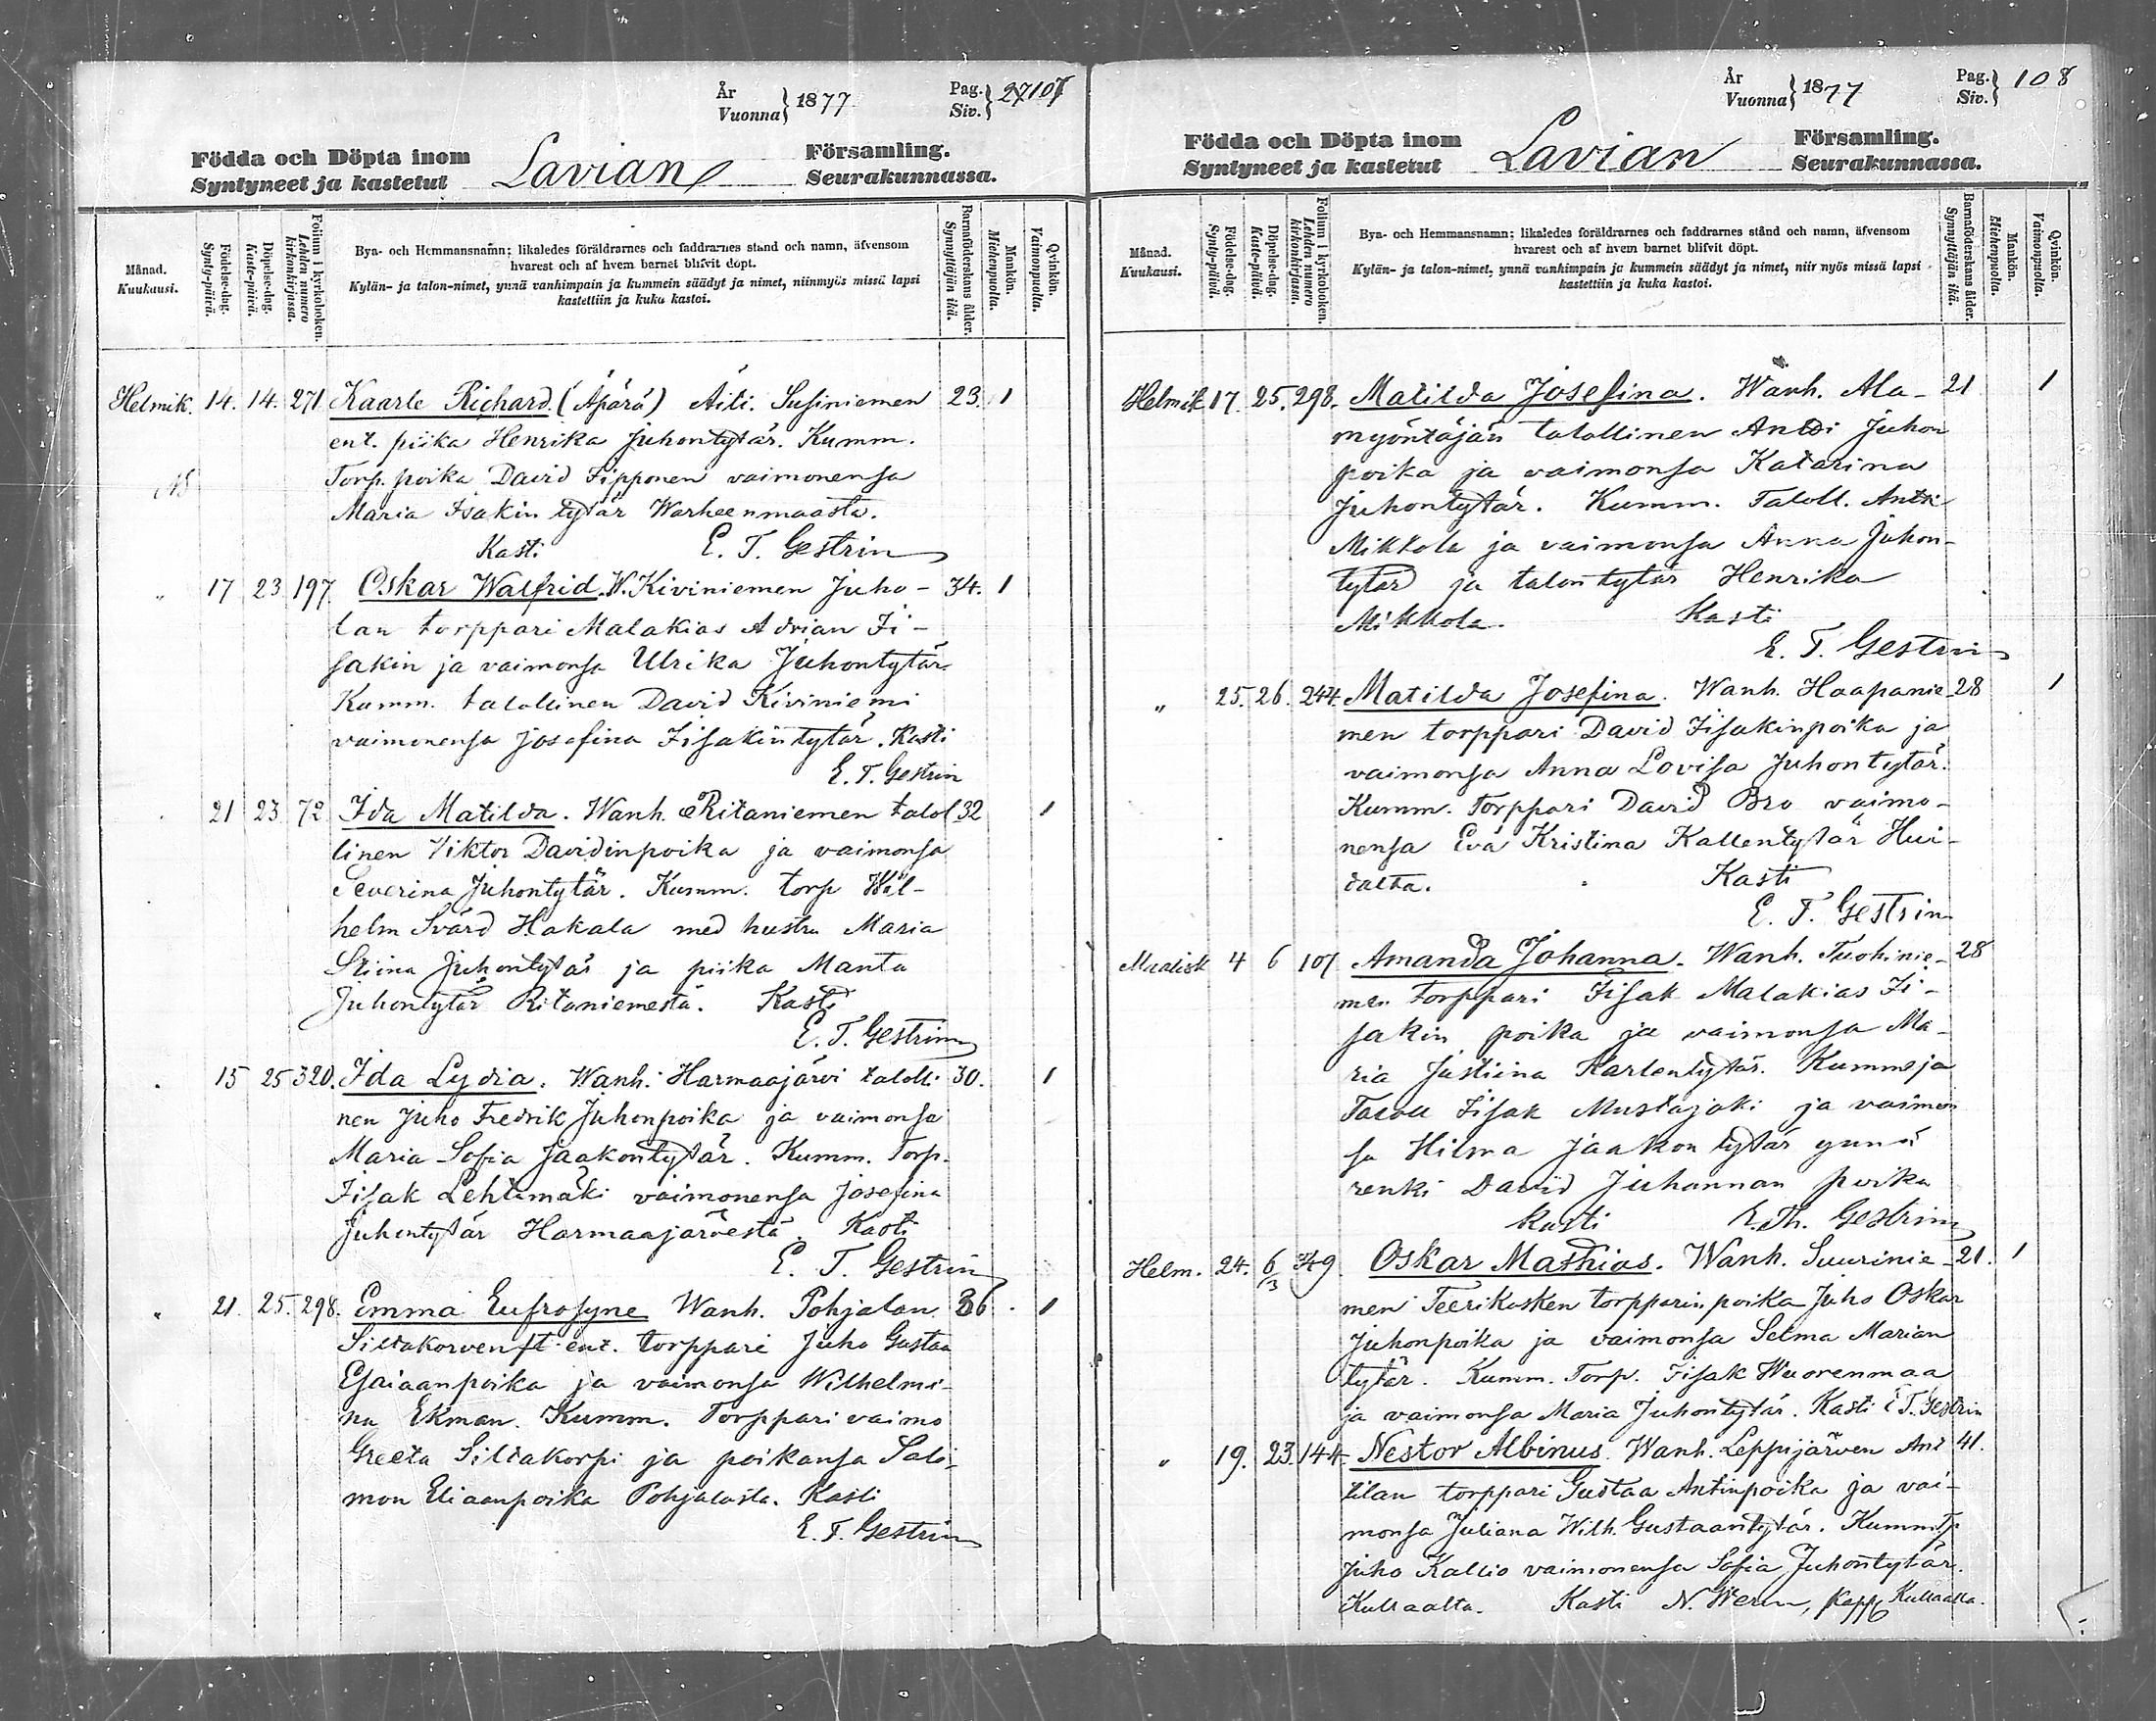 År
Vuonna } 1877
Pag.
Siv. } 107
Födda och Döpta inom
Syntyneet ja kastetut
Lavian
Församling.
Seurakunnassa.
Månad.
Kuukausi.
Födelse-dag.
Synty-päivä.
Döpelse-dag.
Kaste-päivä.
Folium i kyrkoboken.
Lehden numero kirkonkirjassa.
Bya- och Hemmansnamn; likaledes föräldrarnes och faddrarnes stånd och namn, äfvensom
hvarest och af hvem barnet blifvit döpt.
Kylän- ja talon-nimet, ynnä vanhimpain ja kummein säädyt ja nimet, niinmyös missä lapsi
kastettiin ja kuka kastoi.
Barnaföderskans ålder.
Synnyttäjän ikä.
Mankön.
Miehenpuolta.
Qvinkön.
Vaimonpuolta.
Helmik. 14. 14. 271 Kaarle Richard (Äpärä) Äiti. Susiniemen 23. 1
ent. piika Henrika Juhontytär. Kumm.
Torp. poika David Fipponen vaimonensa
Maria Isakin tytär Warheenmaasta.
Kasti E. T. Gestrin
" 17 23 197 Oskar Walfrid. W. Kiviniemen Juho- 34. 1
lan torppari Malakias Adrian Ii-
sakin ja vaimonsa Ulrika Juhontytär
Kumm. talollinen David Kiviniemi
vaimonensa Josefina Iisakintytär. Kasti
E. T. Gestrin
21 23 72 Ida Matilda. Wanh. Ritaniemen talol 32 1
linen Viktor Davidinpoika ja vaimonsa
Severina Juhontytär. Kumm. torp Wil-
helm Svärd Hakala med hustru Maria
Stiina Juhontytär ja piika Manta
Juhontytär Ritaniemestä. Kasti
E. T. Gestrin
15 25 320. Ida Lydia. Wanh. Harmaajärvi talolli- 30. 1
nen Juho Fredrik Juhonpoika ja vaimonsa
Maria Sofia Jaakontytär. Kumm. Torp.
Iisak Lehtimäki vaimonensa Josefina
Juhontytär Harmaajärvestä. Kasti
E. T. Gestrin
" 21. 25. 298. Emma Eufrosyne Wanh. Pohjalan 36. 1
Siltakorven ent. torppari Juho Gustaa
Esaiaanpoika ja vaimonsa Wilhelmi-
na Ekman. Kumm. Torppari vaimo
Greeta Siltakorpi ja poikansa Salo-
mon Eliaanpoika Pohjalasta. Kasti
E. T. Gestrin
År
Vuonna } 1877
Pag.
Siv. } 108
Födda och Döpta inom
Syntyneet ja kastetut
Lavian
Församling.
Seurakunnassa.
Månad.
Kuukausi.
Födelse-dag.
Synty-päivä.
Döpelse-dag.
Kaste-päivä.
Folium i kyrkoboken.
Lehden numero kirkonkirjassa.
Bya- och Hemmansnamn; likaledes föräldrarnes och faddrarnes stånd och namn, äfvensom
hvarest och af hvem barnet blifvit döpt.
Kylän- ja talon-nimet, ynnä vanhimpain ja kummein säädyt ja nimet, niin myös missä lapsi
kastettiin ja kuka kastoi.
Barnaföderskans ålder.
Synnyttäjän ikä.
Mankön.
Miehenpuolta.
Qvinkön.
Vaimonpuolta.
Helmik 17. 25. 298. Matilda Josefina. Wanh. Ala- 21 1
myöntäjän talollinen Antti Juhon
poika ja vaimonsa Katarina
Juhontytär. Kumm. Taloll. Antti
Mikkola ja vaimonsa Anna Juhon-
tytär ja talontytär Henrika
Mikkola. Kasti
E. T. Gestrin
" 25. 26. 244. Matilda Josefina. Wanh. Haapanie- 28 1
men torppari David Iisakinpoika ja
vaimonsa Anna Lovisa Juhontytär.
Kumm. Torppari David Bro vaimo-
nensa Eva Kristina Kallentytär Hui-
dalta. Kasti
E. T. Gestrin
Maalisk 4 6 107 Amanda Johanna. Wanh. Tuohinie- 28
men Torppari Iisak Malakias Ii-
sakin poika ja vaimonsa Ma-
ria Justiina Karlentytär. Kummeja
Taloll Iisak Mustajoki ja vaimon
sa Hilma Jaakon tytär ynnä
renki David Juhannan poika
Kasti E. Th. Gestrin
Helm. 24. 6/3 349. Oskar Mathias. Wanh. Suurinie- 21. 1
men Teerikosken torpparin poika Juho Oskar
Juhonpoika ja vaimonsa Selma Marian
tytär. Kumm. Torp. Iisak Wuorenmaa
ja vaimonsa Maria Juhontytär. Kasti E. T. Gestrin
" 19. 23. 144. Nestor Albinus. Wanh. Leppijärven Ant 41.
tilan torppari Gustaa Antinpoika ja vai-
monsa Juliana Wilh. Gustaantytär. Kumm.
Juho Kallio vaimonensa Sofia Juhontytär.
Kullaalta. Kasti N. Weren, Kapp. Kullaalla.